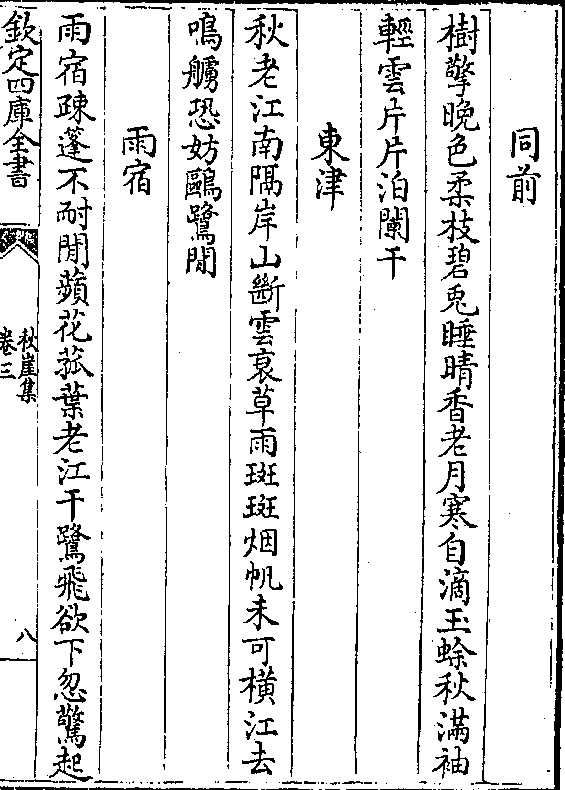 同前
樹擎晚色柔枝碧兎睡晴香老月寒自滴玉蜍秋滿袖
輕雲片片泊闌干
東津
秋老江南隔岸山斷雲衰草雨斑斑烟帆未可橫江去
鳴艣恐妨鷗鷺閒
雨宿
雨宿疎蓬不耐閒蘋花菰葉老江干鷺飛欲下忽驚起
欽定四庫全書
秋崖集
卷三
八